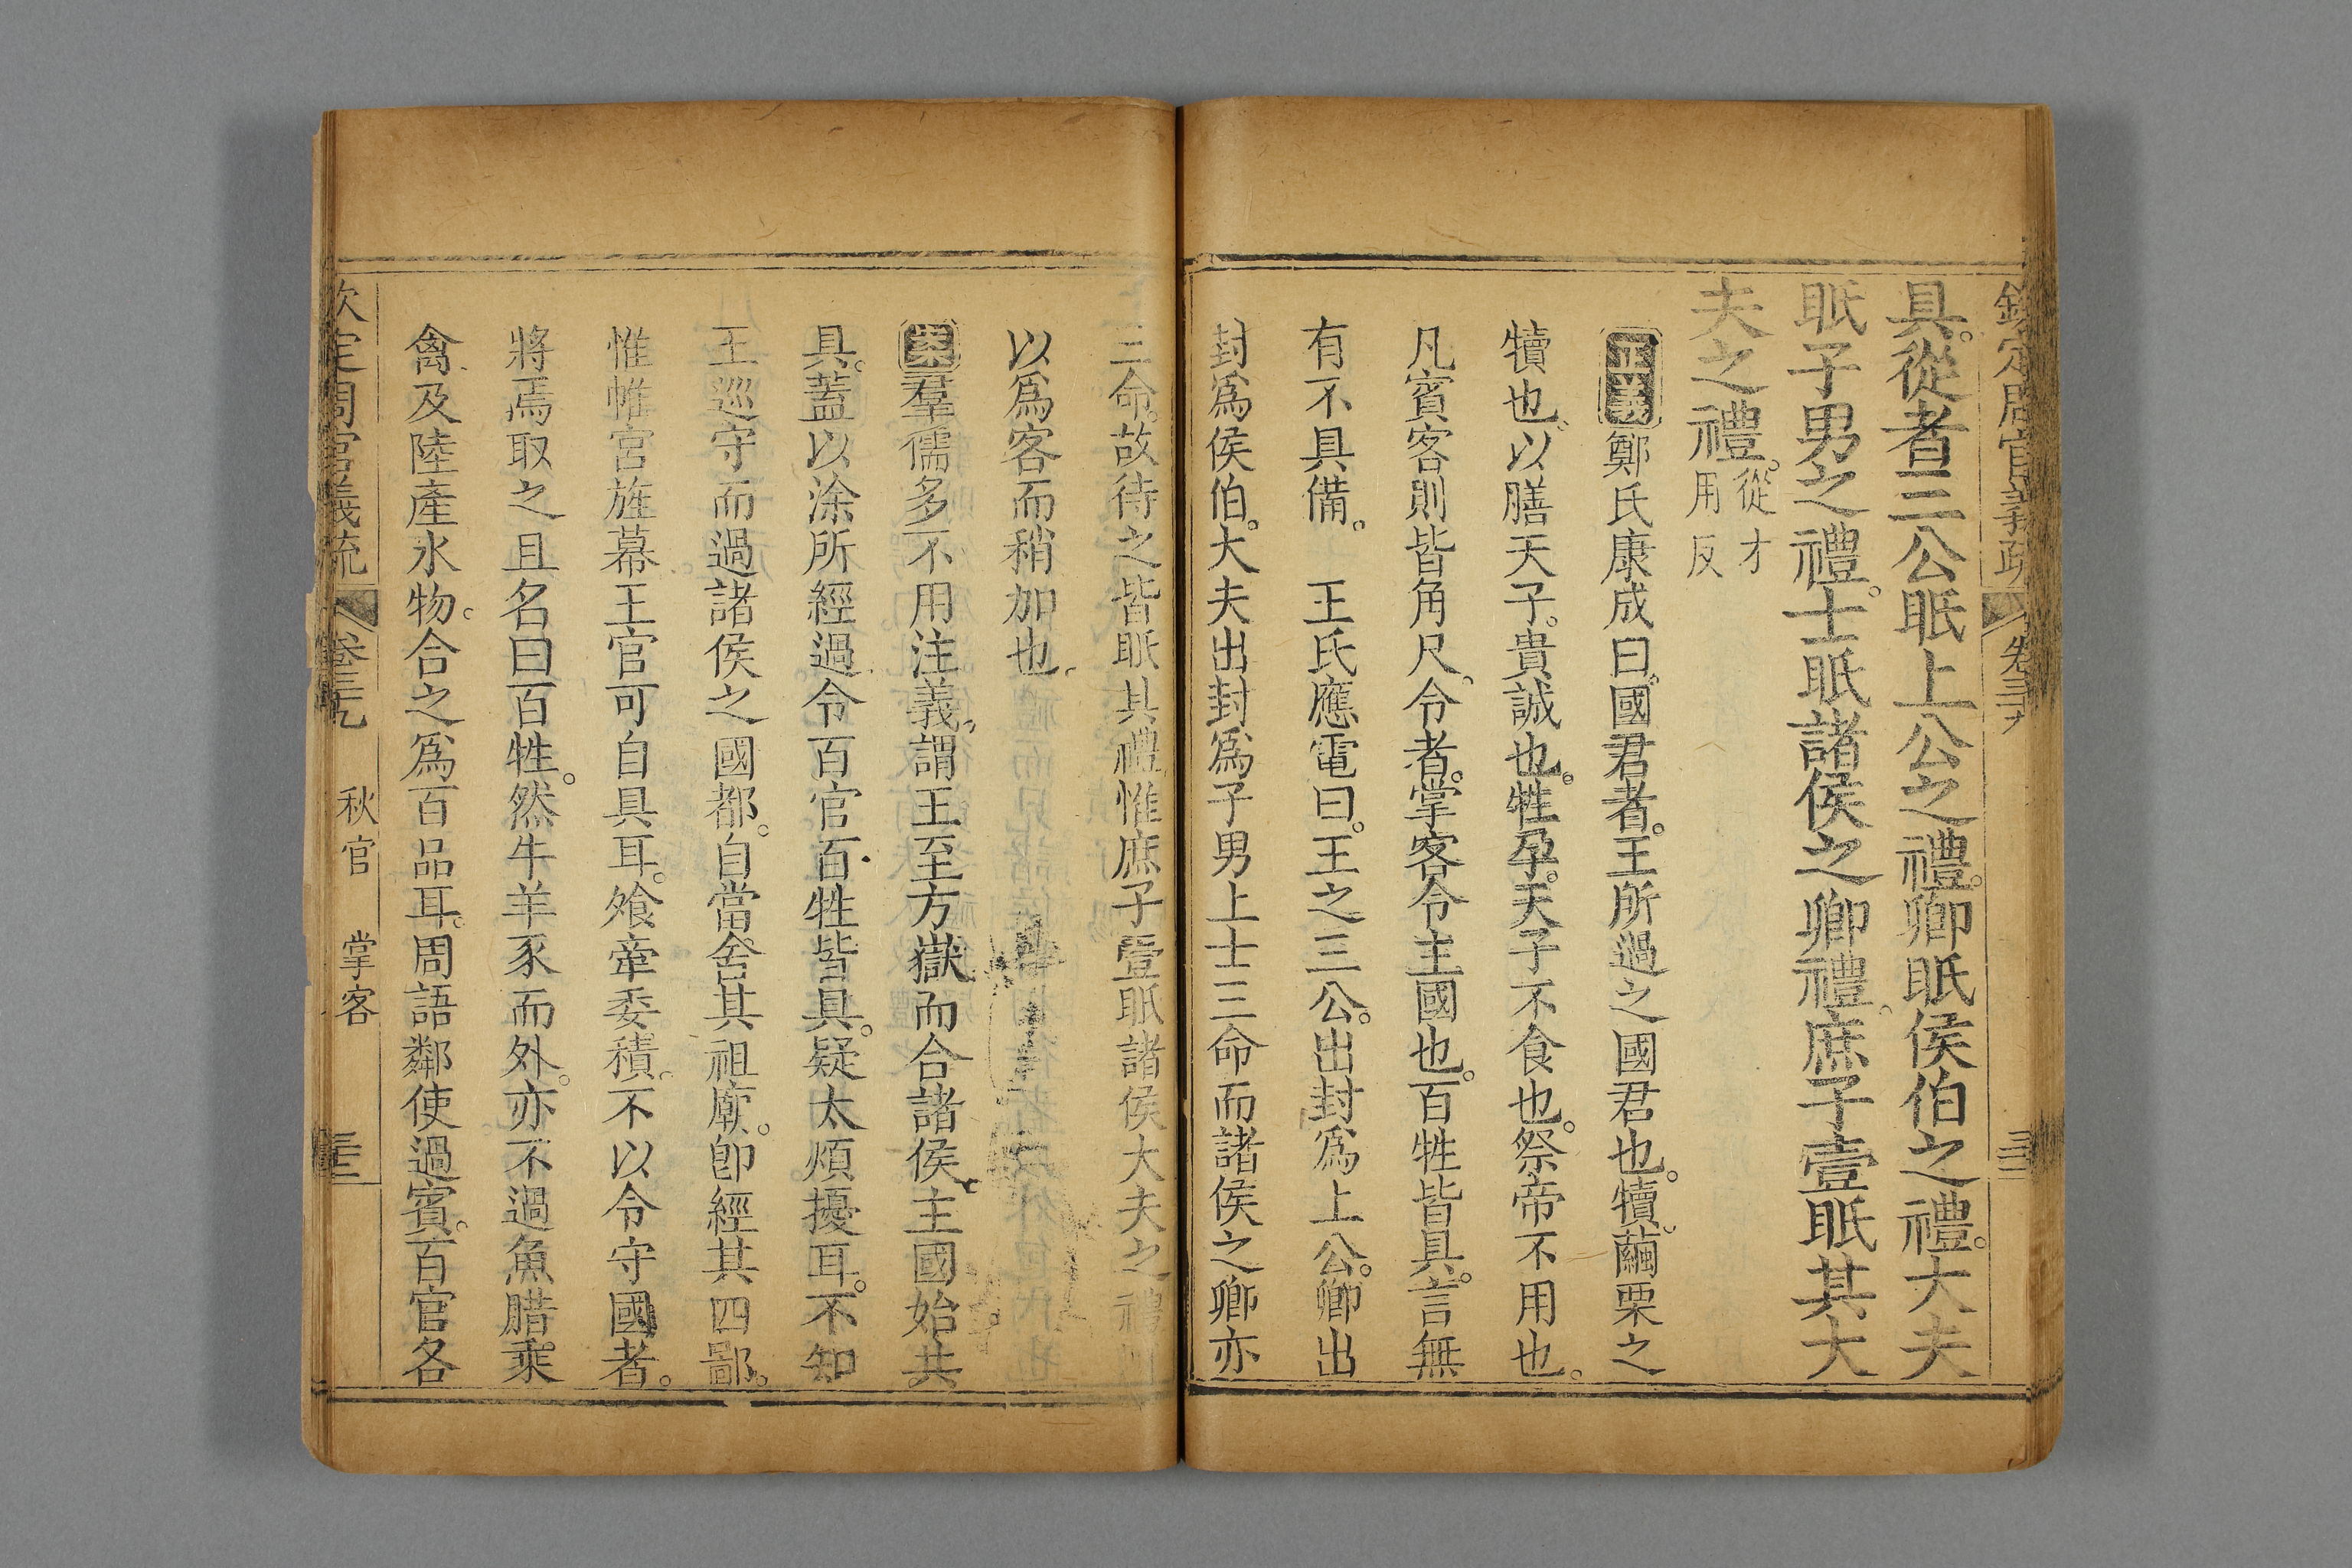 欽定周官義疏 卷三十九
具。從者三公眂上公之禮。卿眂侯伯之禮。大夫
眂子男之禮。士眂諸侯之卿禮。庶子壹眂其大
夫之禮。從才用反
正義鄭氏康成曰。國君者。王所過之國君也。犢。繭栗之
犢也。以膳天子。貴誠也。牲孕。天子不食也。祭帝不用也。
凡賓客則皆角尺。令者。掌客令主國也。百牲皆具。言無
有不具備。 王氏應電曰。王之三公。出封爲上公。卿出
封爲侯伯。大夫出封爲子男上士三命而諸侯之卿亦
三命。故待之皆眂其禮惟庶子壹眂諸侯大夫之禮
以爲客而稍加也。
案羣儒多不用注義。謂王至方嶽而合諸侯。主國始共
具。蓋以涂所經過令百官百牲皆具。疑太煩擾耳。不知
王巡守而過諸侯之國都。自當舍其祖廟。卽經其四鄙。
惟帷宮旌幕王官可自具耳。飧牽委積。不以令守國者。
將焉取之且名曰百牲。然牛羊豕而外。亦不過魚腊乘
禽及陸產水物。合之爲百品耳。周語鄰使過賓。百官各
欽定周官義疏 卷三十九 秋官 掌客